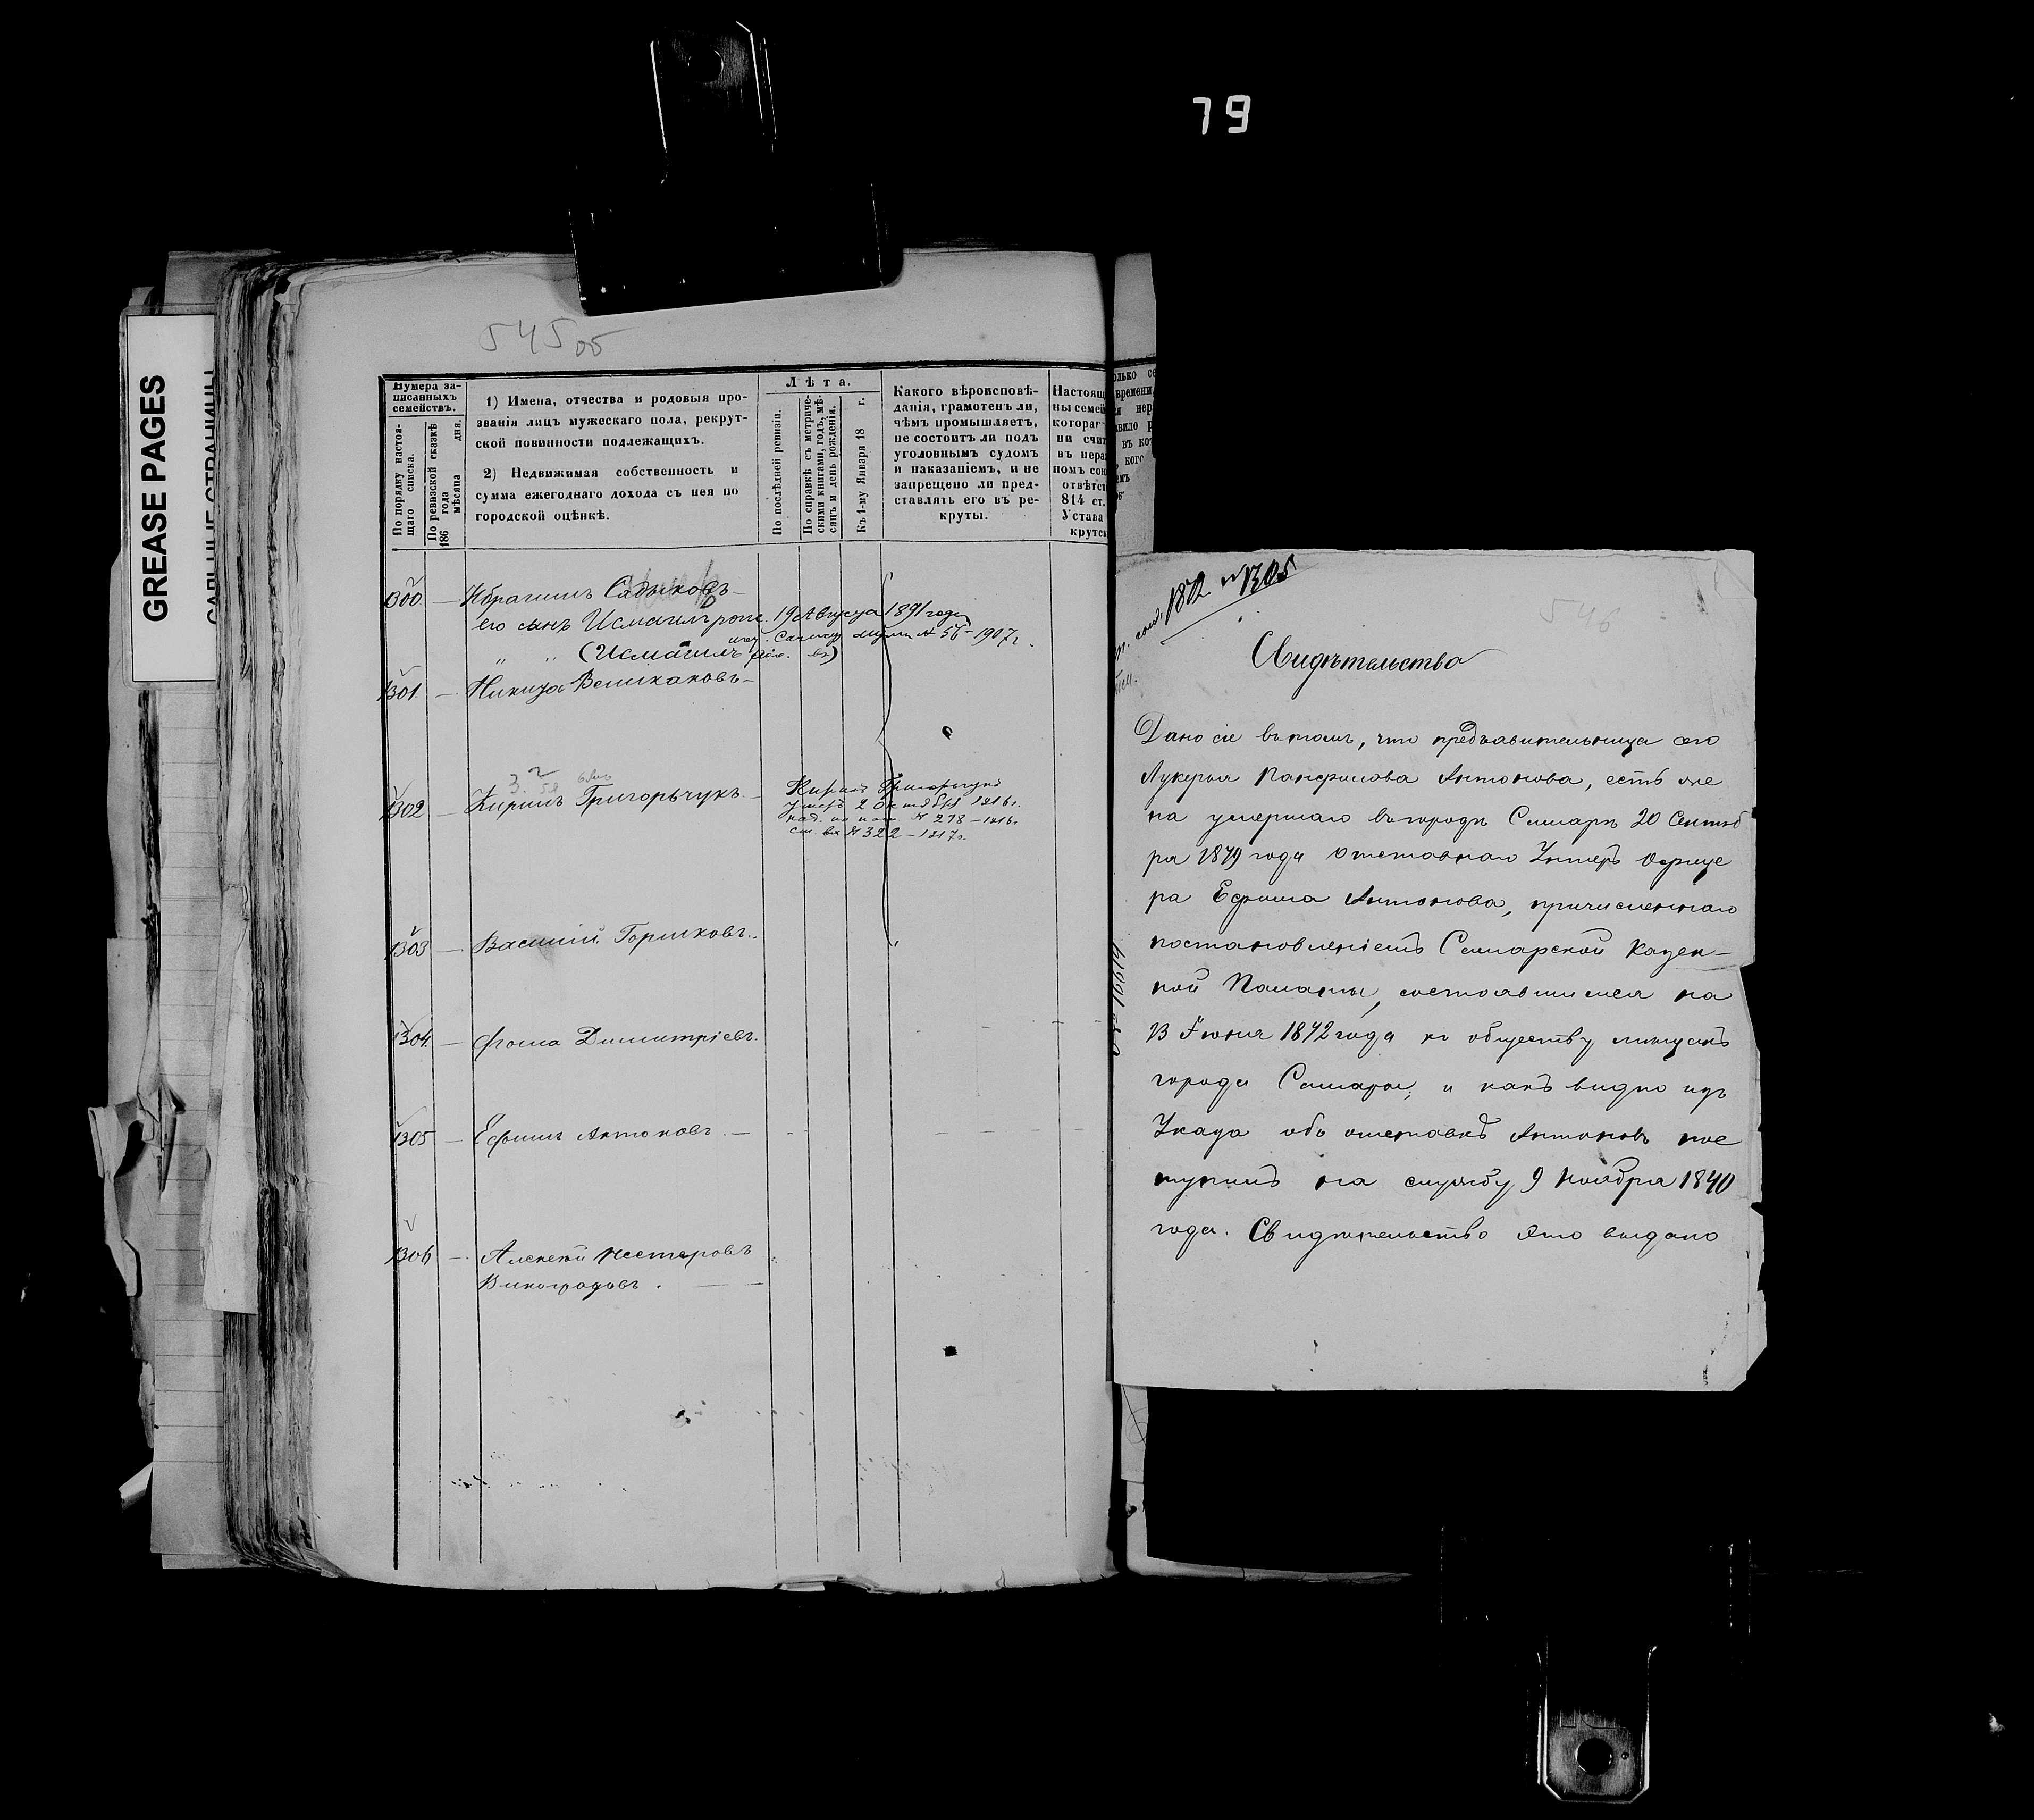 79
GREASE PAGES
545 об
Нумера за-
писанныхъ
семействъ.
По порядку настоя-
щаго списка.
По ревизской сказкѣ
186 года
мѣсяца дня.
1) Имена, отчества и родовыя про-
званія лицъ мужескаго пола, рекрут-
ской повинности подлежащихъ.
2) Недвижимая собственность и
сумма ежегоднаго дохода съ нея по
городской оцѣнкѣ.
Лѣта.
По послѣдней ревизіи.
По справкѣ съ метриче-
скими книгами, годъ, мѣ-
сяцъ и день рожденія.
Къ 1-му Января 18 г.
Какого вѣроисповѣ-
данія, грамотенъ ли,
чѣмъ промышляетъ,
не состоитъ ли подъ
уголовнымъ судомъ
и наказаніемъ, и не
запрещено ли пред-
ставлять его въ ре-
круты.
Настоящ
ны семей
котораг
ни счит
въ нера
номъ сою
отвѣтст
814 ст.
Устава
крутск
1300 — Ибрагимъ Садыковъ —
его сынъ Исмаилъ рож. 19 Августа 1891 года
№ 56 - 1907 г.
" " (Исмагилъ)
1301 — Никита Великановъ —
1302 — Кирилъ Григорьчукъ —
Кирилъ Григорьчукъ
умеръ 2 Октября 1916 г.
№ 278 - 1916 г.
№ 322 - 1917 г.
1303 — Василій Горшковъ.
1304 — Фома Димитріевъ.
1305 — Ефимъ Антоновъ —
1306 — Алексѣй Нестеровъ
Виноградовъ. —
1872 № 1305
546
Свидѣтельство
Дано сіе въ томъ, что предъавительница сего
Лукерья Панфилова Антонова, есть же
на умершаго въ городѣ Самарѣ 20 Сентяб
ря 1879 года отставнаго Унтеръ Офице
ра Ефима Антонова, причисленнаго
постановленіемъ Самарской Казен-
ной Палаты, состоявшимся на
13 Іюня 1872 года къ обществу мѣщанъ
города Самары, и какъ видно изъ
Указа объ отставкѣ Антоновъ пос
тупилъ на службу 9 Ноября 1840
года. Свидѣтельство это выдано